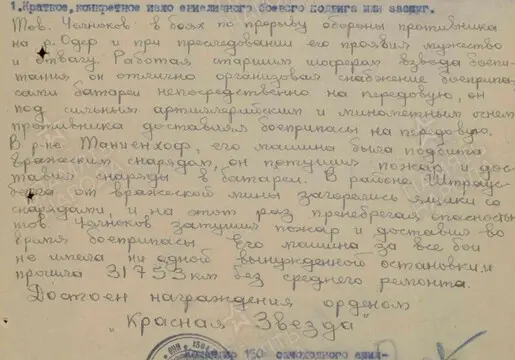 1. Краткое, конкретное изложение личного боевого подвига или заслуг.
Тов. Челноков в боях по прорыву обороны противника
на р. Одер и при преследовании его проявил мужество
и отвагу. Работая старшим шофером взвода боепи-
тания он отлично организовал снабжение боеприпа-
сами батареи непосредственно на передовую, он
под сильным артиллерийским и минометным огнем
противника доставлял боеприпасы на передовую.
В р-не Маниенхоф, его машина была подбита
вражеским снарядам, он потушил пожар и дос-
тавил снаряды в батареи. В районе Штраус-
берга от вражеской мины загорелись ящики со
снарядами, и на этот раз пренебрегая опасностью
тов. Челноков затушил пожар и доставил во-
время боеприпасы. Его машина за все бои
не имела ни одной вынужденной остановки и
прошла 31753 км без среднего ремонта.
Достоен награждения орденом
"Красная Звезда"
командир 150 самоходного